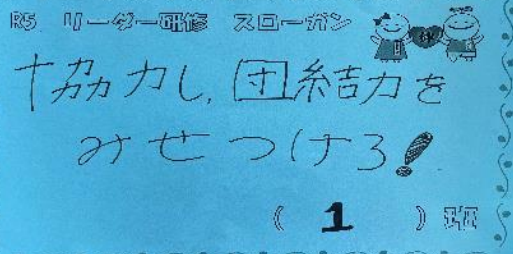 R5 リーダー研修 スローガン
協力し,団結力を
みせつけろ!
( 1 )班